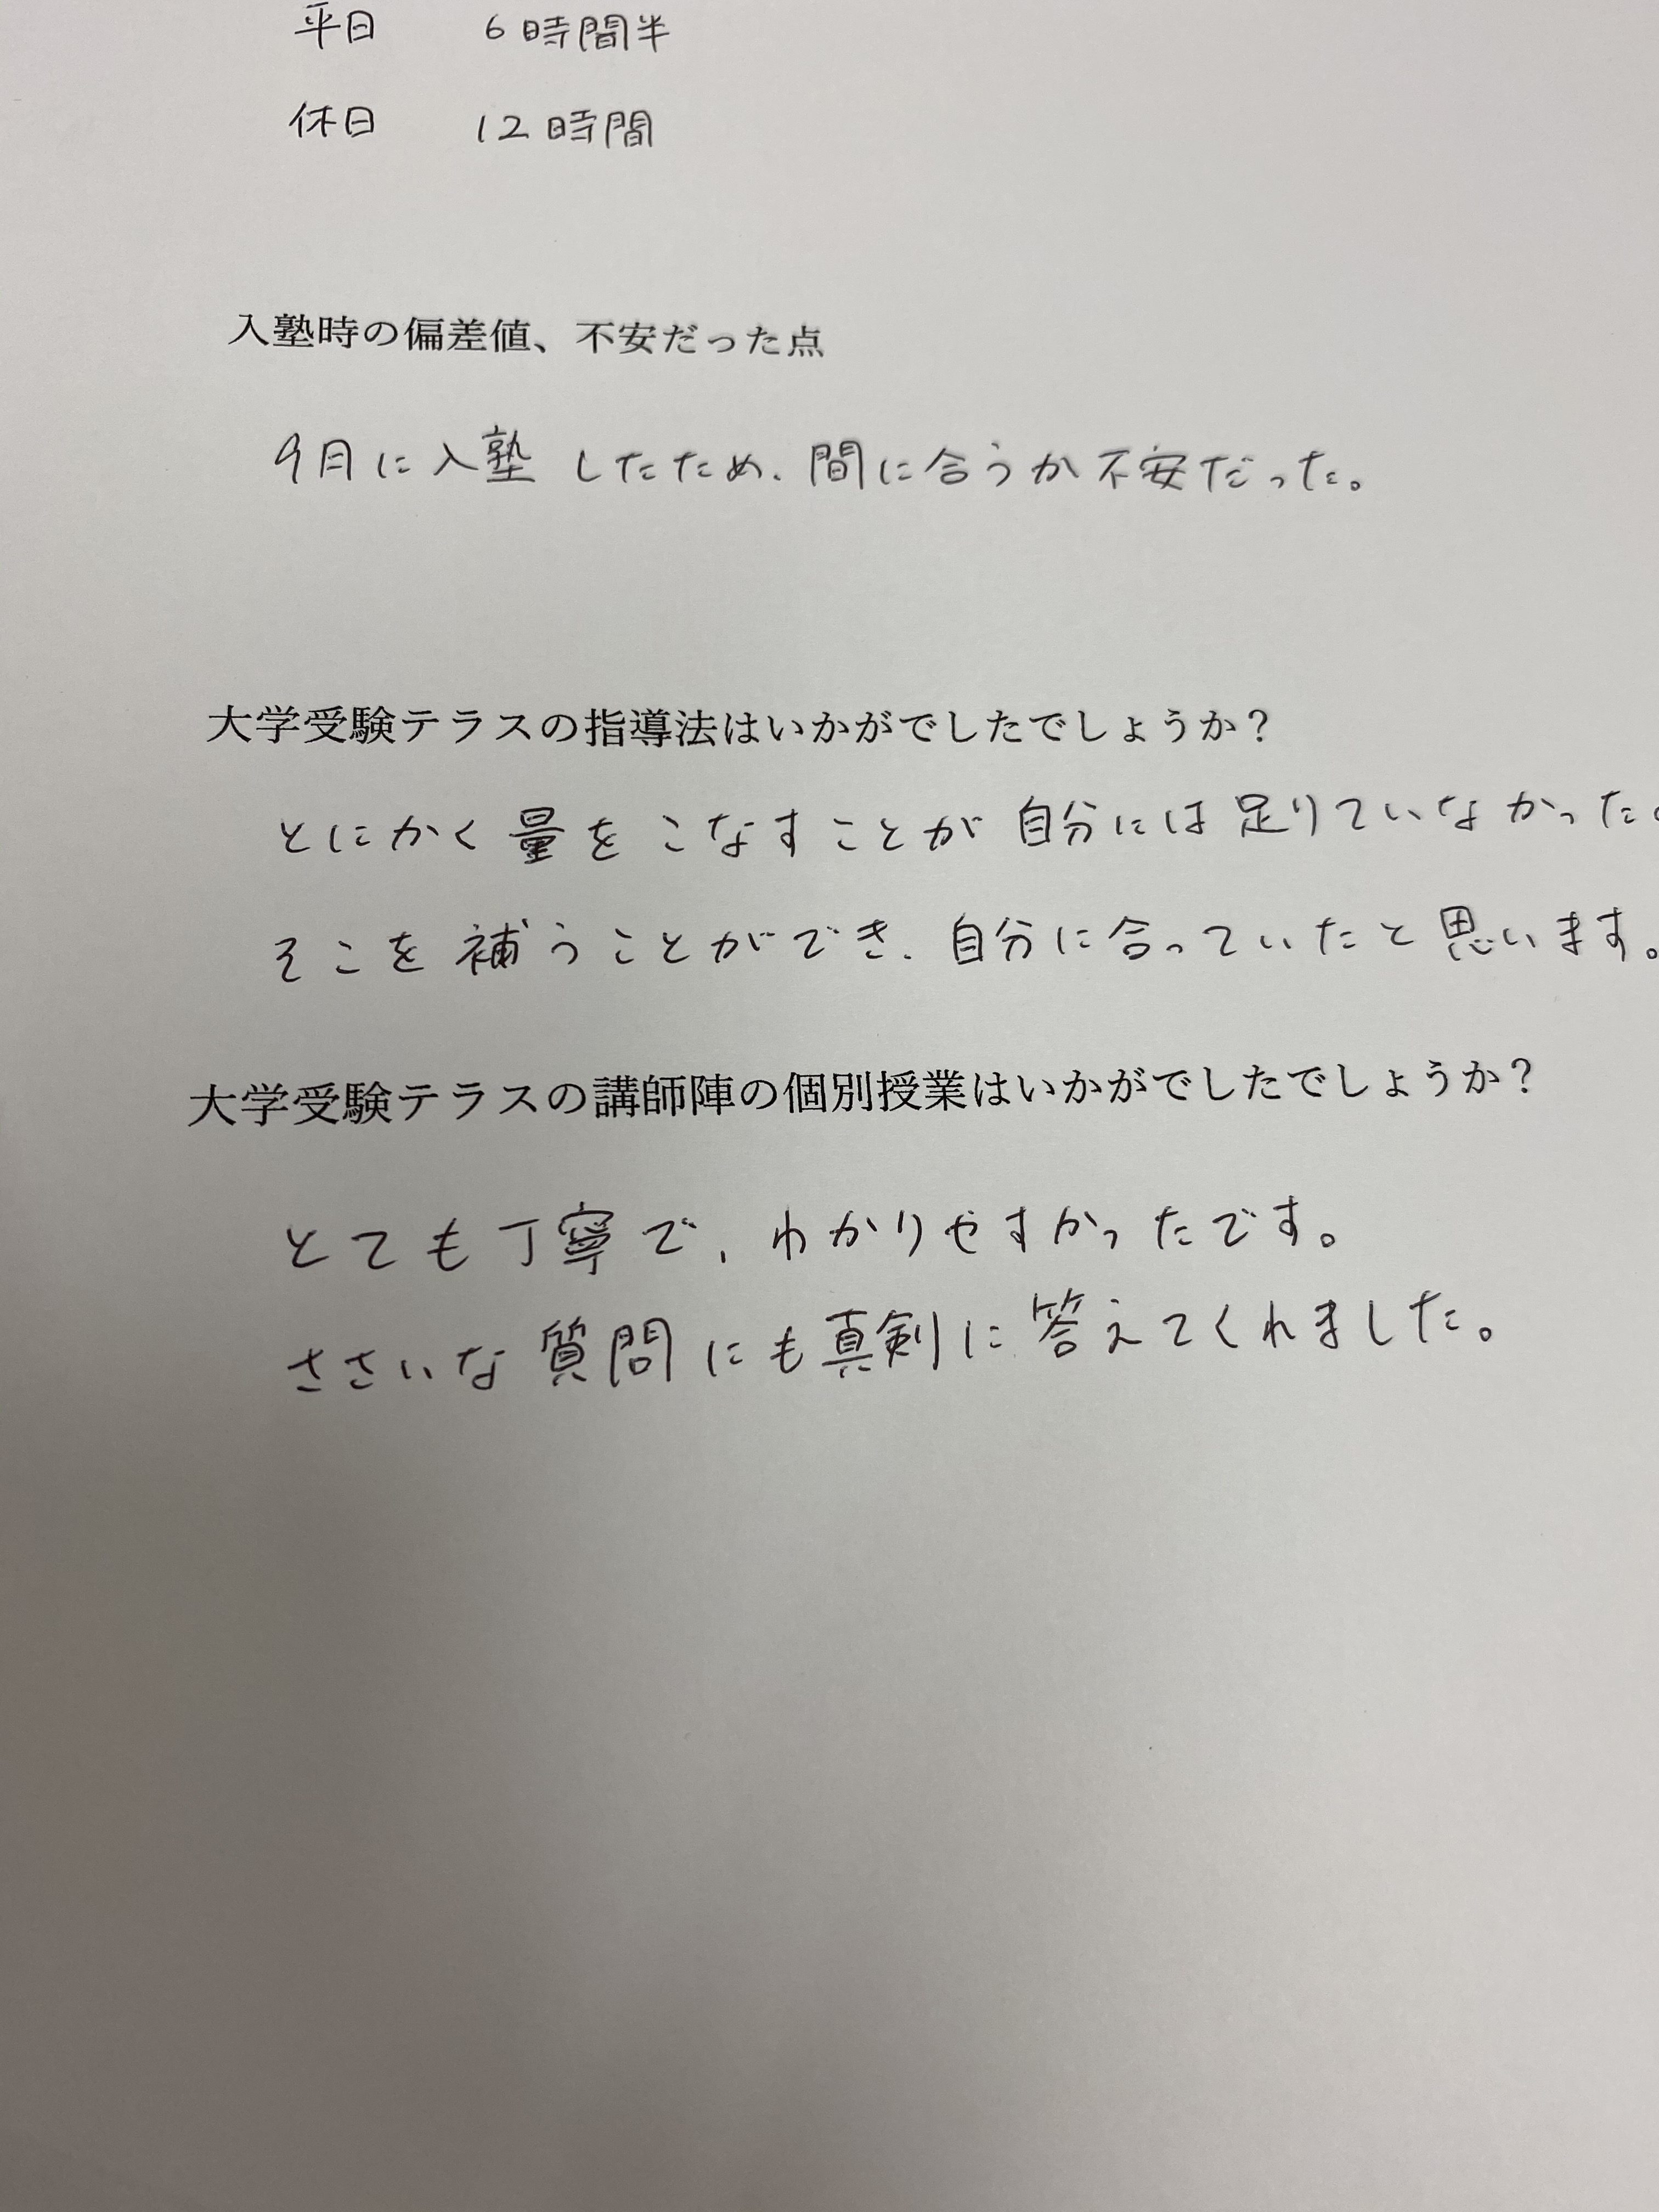 平日 6時間半
休日 12時間
入塾時の偏差値、不安だった点
9月に入塾したため、間に合うか不安だった。
大学受験テラスの指導法はいかがでしたでしょうか？
とにかく量をこなすことが自分には足りていなかった。
そこを補うことができ、自分に合っていたと思います。
大学受験テラスの講師陣の個別授業はいかがでしたでしょうか？
とても丁寧で、わかりやすかったです。
ささいな質問にも真剣に答えてくれました。